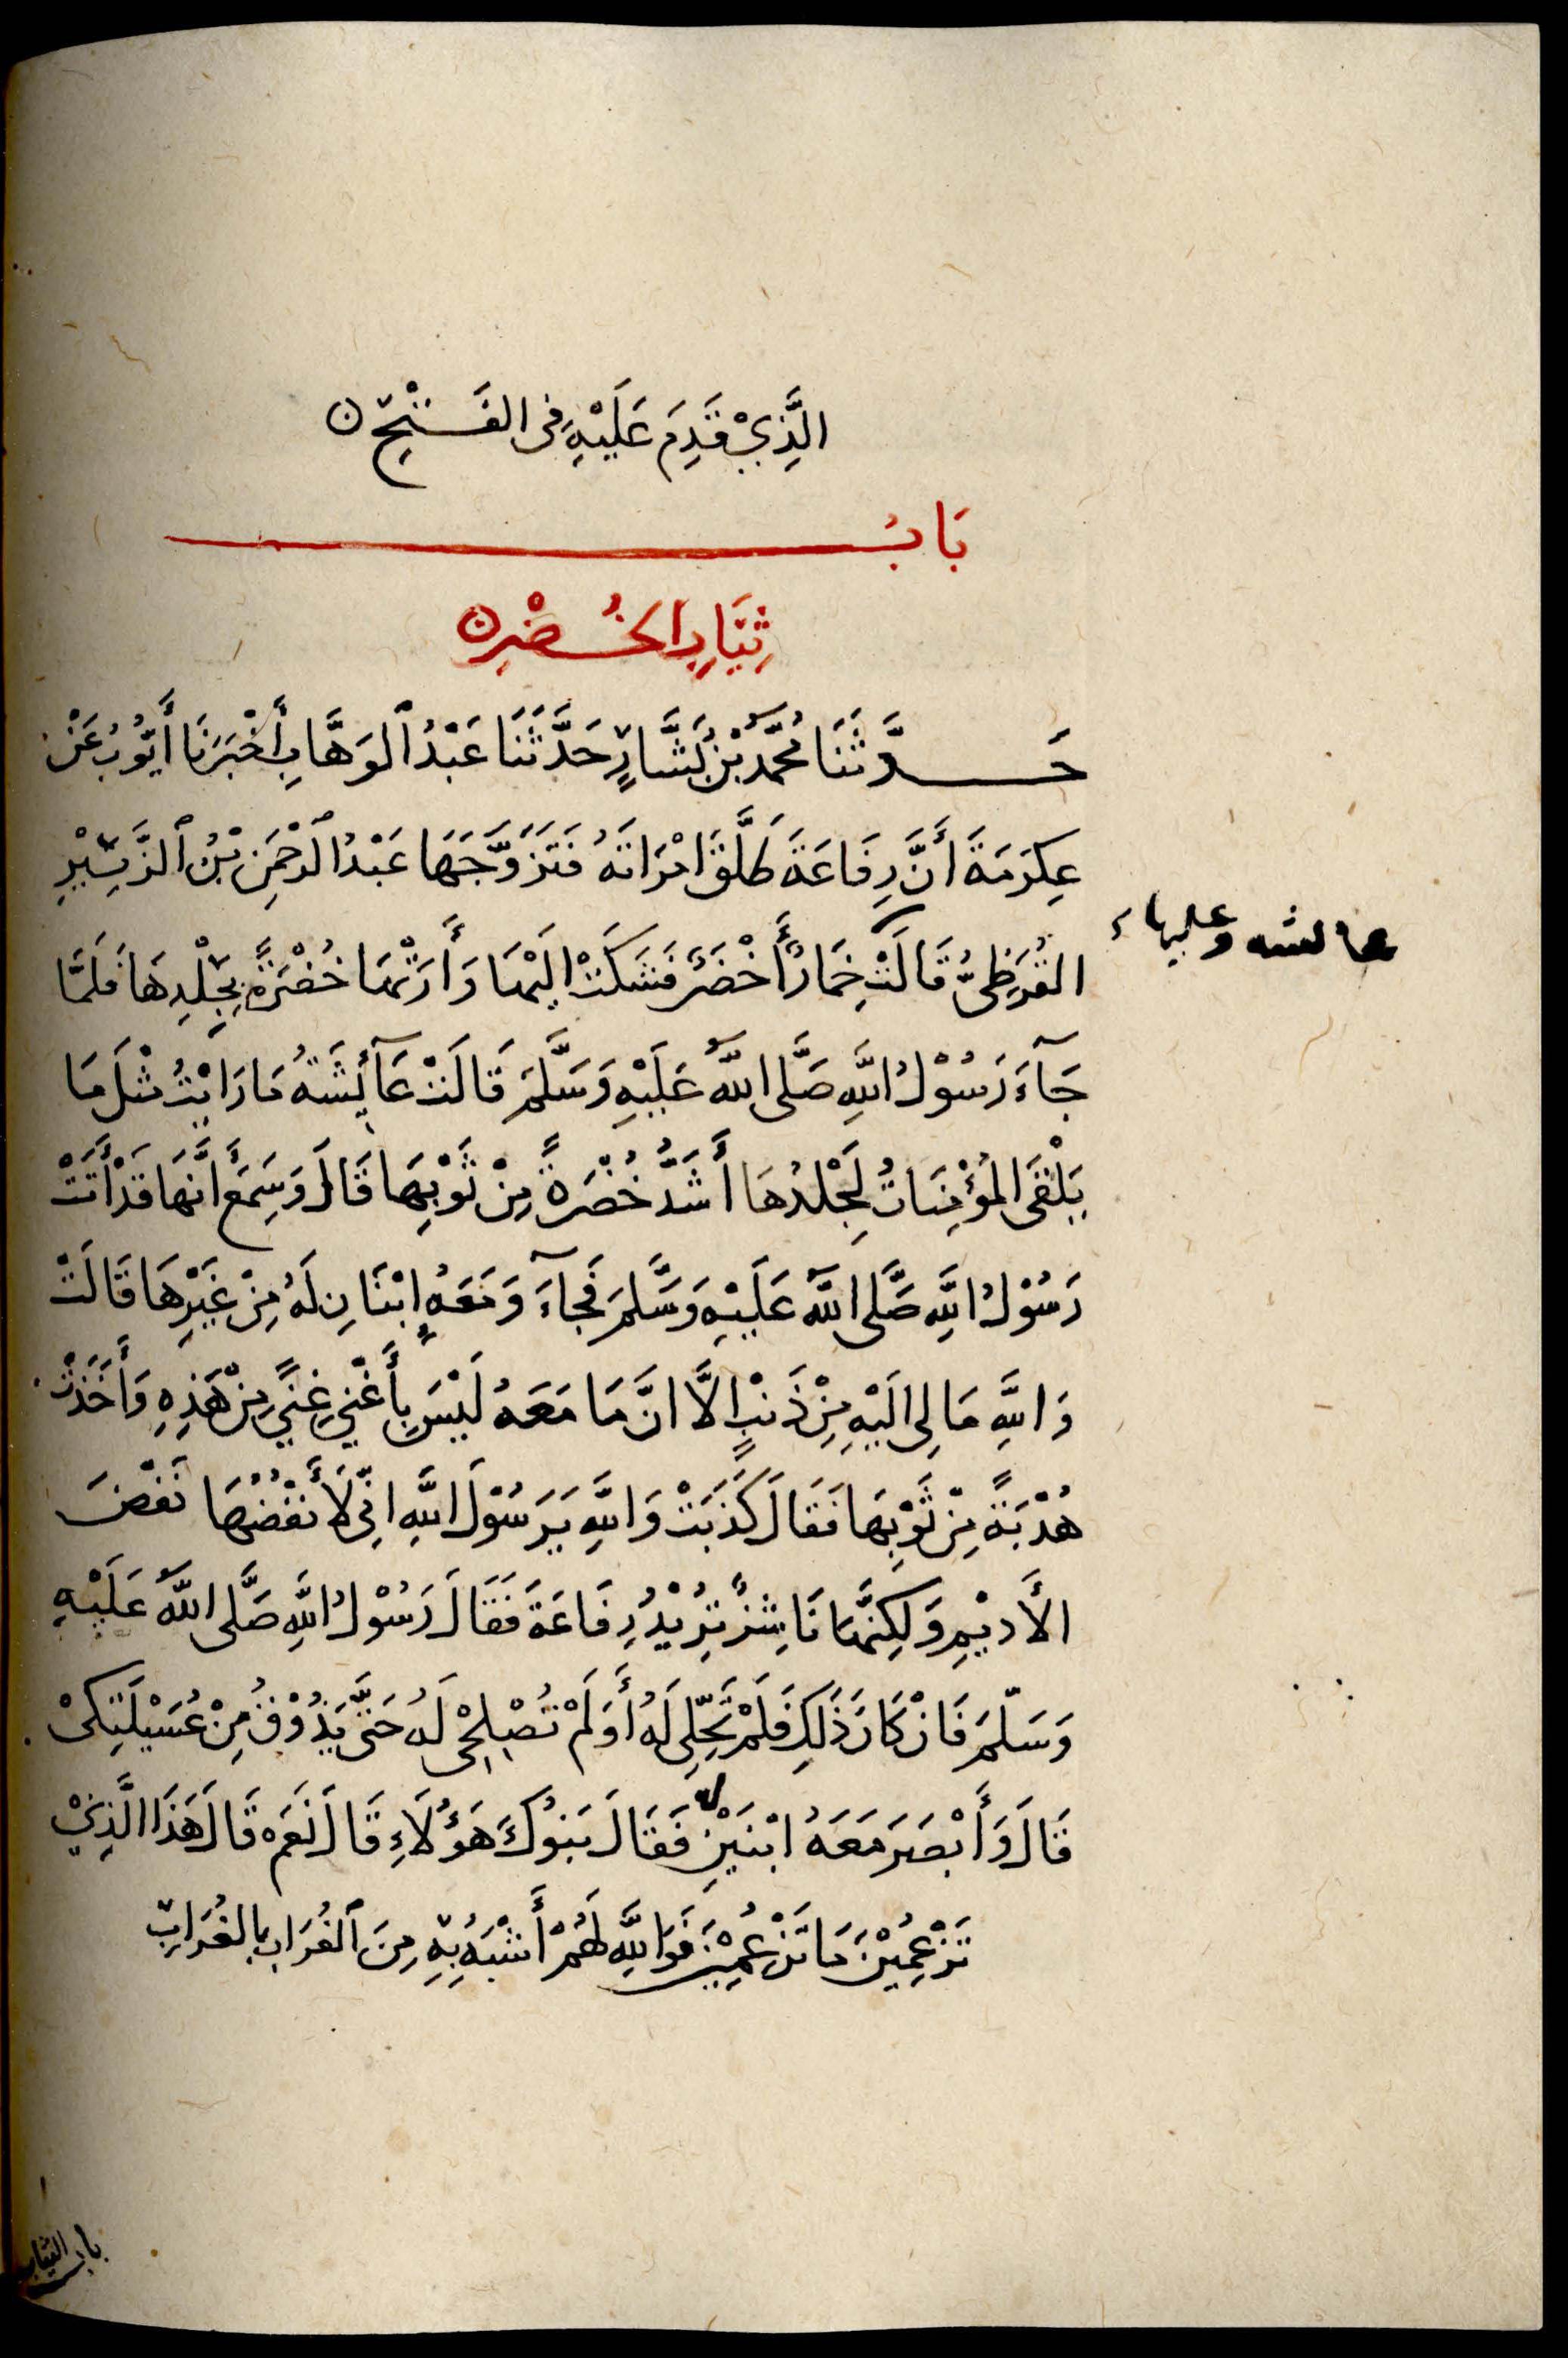 الَّذِيْ قَدِمَ عَلَيْهِ فِى الفَتْحِ ن
بَابُ
ثِيَابِ الخُضْرِ ن
حَدَّثَنَا مُحَمَّدُ بْنُ بَشَّارٍ حَدَّثَنَا عَبْدُ الوَهَّابِ أَخْبَرَنَا أَيُّوْبُ عَنْ
عِكرَمَةَ أَنَّ رِفَاعَةَ طَلَّقَ امْرَاتَهُ فَتَزَوَّجَهَا عَبْدُ الرَّحْمَنِ بْنُ الزَّبِيْرِ
القُرَظِىُّ قَالَتْ خِمَارًا أَخْضَرَ فَشَكَتْ اِلَيْهَا وَأَرَتْهَا خُضْرَةً بِجِلْدِهَا فَلَمَّا
عائشه وعليها
جَآءَ رَسُوْلُ اللَّهِ صَلَّى اللَّهُ عَلَيْهِ وَسَلَّمَ قَالَتْ عَآئِشَةُ مَا رَايْتُ مثْلَ مَا
يَلْقَى المُؤْمِنَاتُ لَجِلْدُهَا أَشَدُّ خُضْرَةً مِنْ ثَوْبِهَا قَالَ وَسَمِعَ أَنَّهَا قَدْ أَتَتْ
رَسُوْلَ اللَّهِ صَلَّى اللَّهُ عَلَيْهِ وَسَلَّمَ فَجآءَ وَمَعَهُ ابْنَانِ لَهُ مِنْ غَيْرِهَا قَالَتْ
وَاللَّهِ مَا لِى اِلَيْهِ مِنْ ذَنْبٍ اِلاَّ انَّ مَا مَعَهُ لَيْسَ بِأَغْنى عَنِّي مِنْ هَذِهِ وَأَخَذَتْ
هُدْبَةً مِنْ ثَوْبِهَا فَقَالَ كَذَبَتْ وَاللَّهِ يَرَسُوْلَ اللَّهِ اِنِّى لَأَنْفُضُهَا نَفْضَ
الأَدِيْمِ وَلكِنَّهَا نَاشِزٌ تُرِيْدُ رِفَاعَةَ فَقَالَ رَسُوْلُ اللَّهِ صَلَّى اللَّهُ عَلَيْهِ
وَسَلَّمَ فَاِنْ كَانَ ذَلِكِ فَلَمْ تَحِلِّى لَهُ أَوَ لَمْ تُصْلِحْى لَهُ حَتَّى يَذُوْقَ مِنْ عُسَيْلَتِكْ
قَالَ وَأَبْصَرَ مَعَهُ ابْنَيْنِ له فَقَالَ بَنُوْكَ هَؤُلَاءِ قَالَ نَعَمْ قَالَ هَذَا الَّذِيْ
تَزْعُمِيْنَ مَا تَزْعُمِيْنَ فَوَاللَّهِ لَهُمْ أَشْبَهُ بِهِ مِنَ الغُرَابِ بِالغُرَابِ
باب الثياب